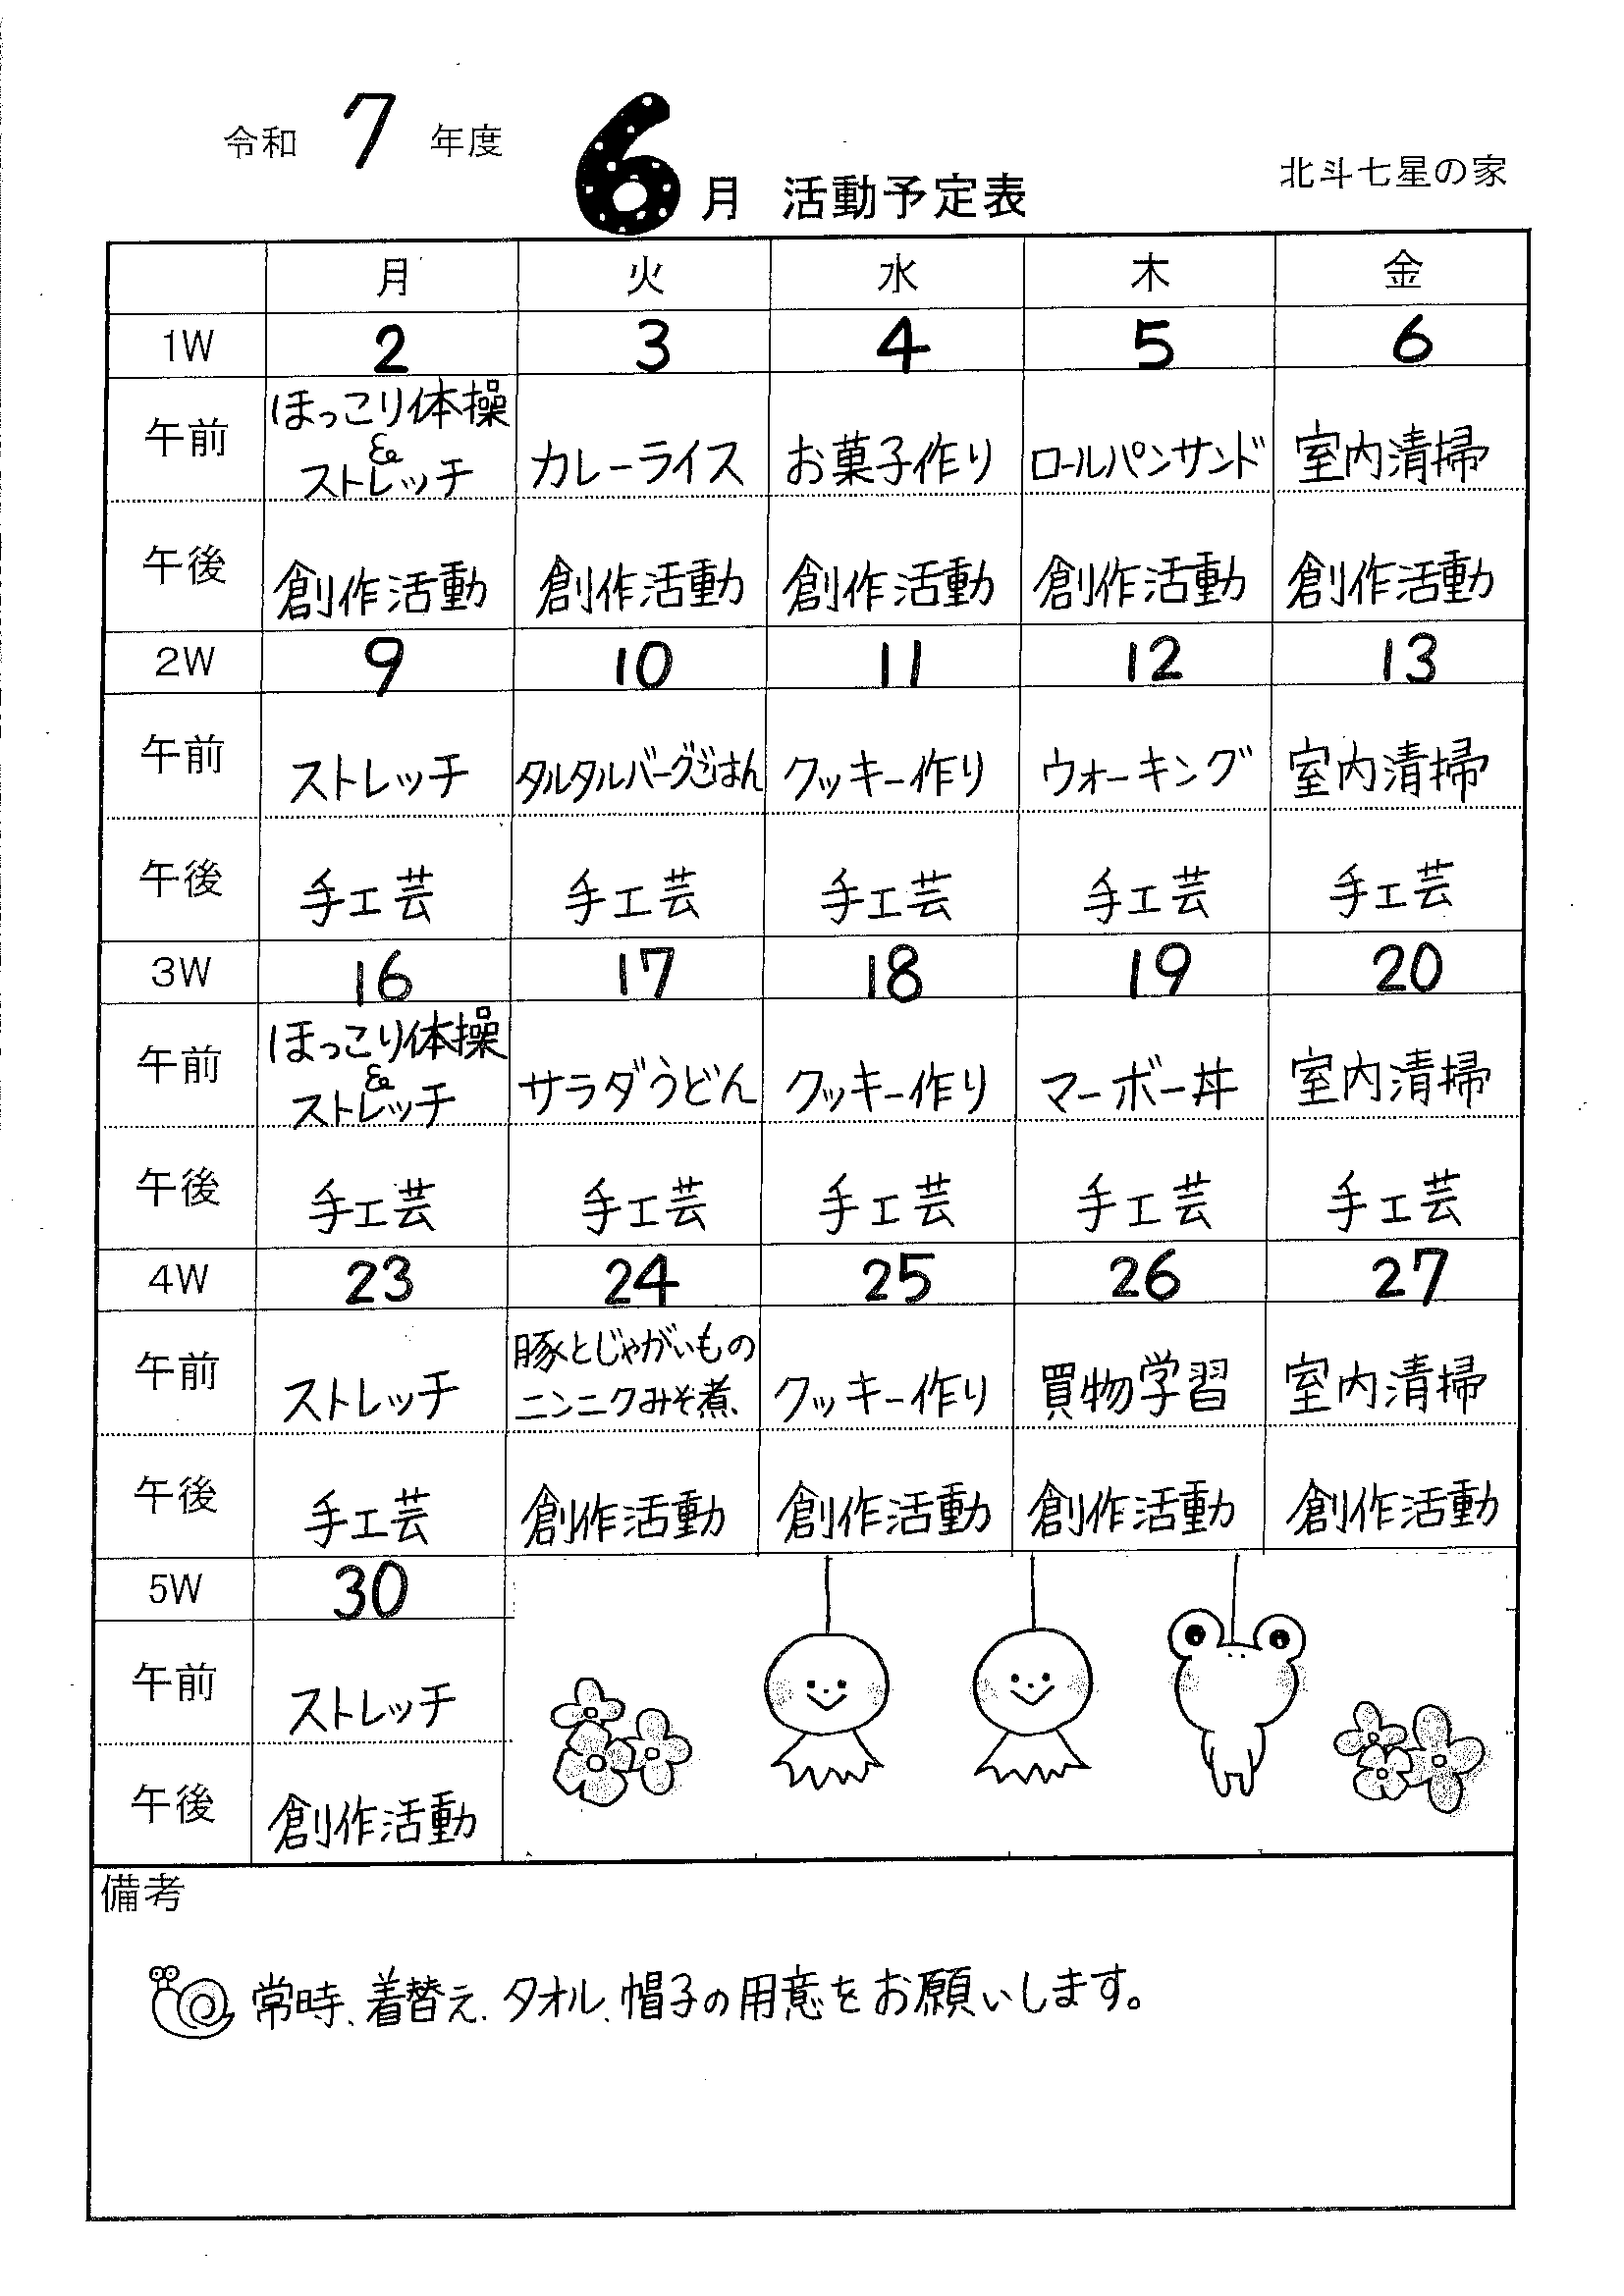 令和 7 年度
6月 活動予定表
北斗七星の家
月 火 水 木 金
1W 2 3 4 5 6
午前 ほっこり体操 & ストレッチ カレーライス お菓子作り ロールパンサンド 室内清掃
午後 創作活動 創作活動 創作活動 創作活動 創作活動
2W 9 10 11 12 13
午前 ストレッチ タルタルバーグごはん クッキー作り ウォーキング 室内清掃
午後 手工芸 手工芸 手工芸 手工芸 手工芸
3W 16 17 18 19 20
午前 ほっこり体操 & ストレッチ サラダうどん クッキー作り マーボー丼 室内清掃
午後 手工芸 手工芸 手工芸 手工芸 手工芸
4W 23 24 25 26 27
午前 ストレッチ 豚とじゃがいもの ニンニクみそ煮、 クッキー作り 買物学習 室内清掃
午後 手工芸 創作活動 創作活動 創作活動 創作活動
5W 30
午前 ストレッチ
午後 創作活動
備考
常時、着替え、タオル、帽子の用意をお願いします。